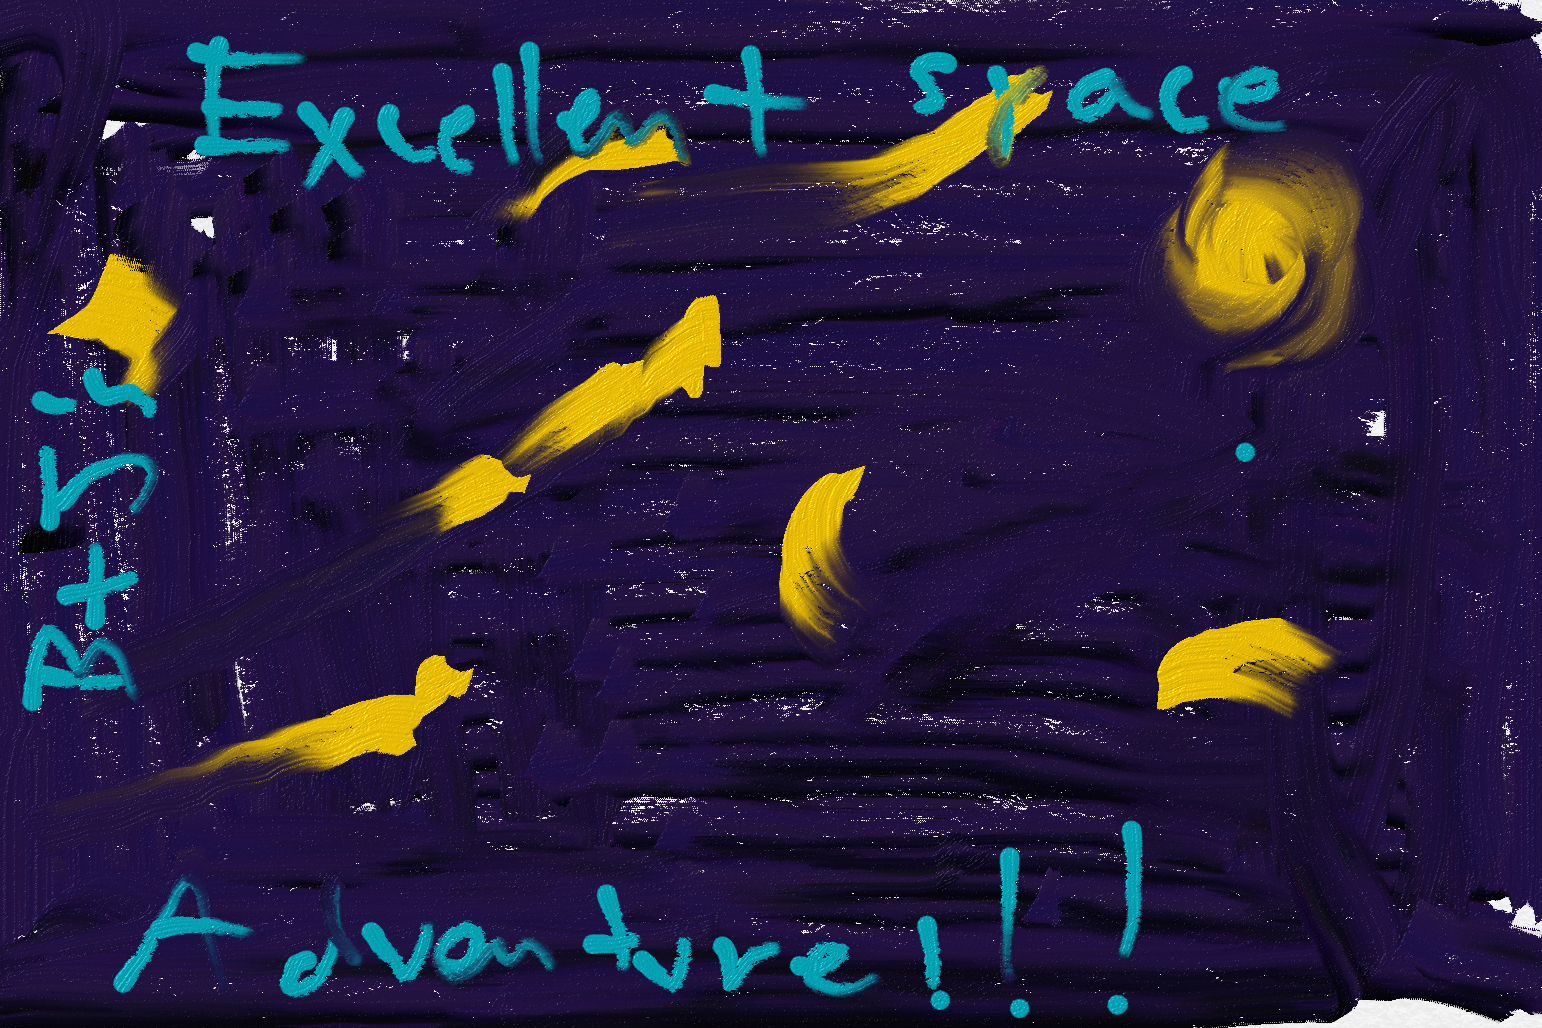 Excellent space
Adventure!!!